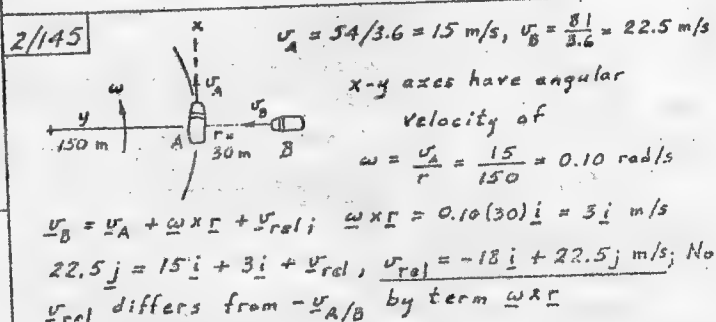 2/145
v_A = 54/3.6 = 15 m/s, v_B = 81/3.6 = 22.5 m/s
x
ω
v_A
y
150 m
A
r =
30 m
v_B
B
x-y axes have angular
velocity of
ω = v_A/r = 15/150 = 0.10 rad/s
v_B = v_A + ω × r + v_rel; ω × r = 0.10(30) i = 3 i m/s
22.5 j = 15 i + 3 i + v_rel, v_rel = -18 i + 22.5 j m/s; No
v_rel differs from - v_A/B by term ω × r